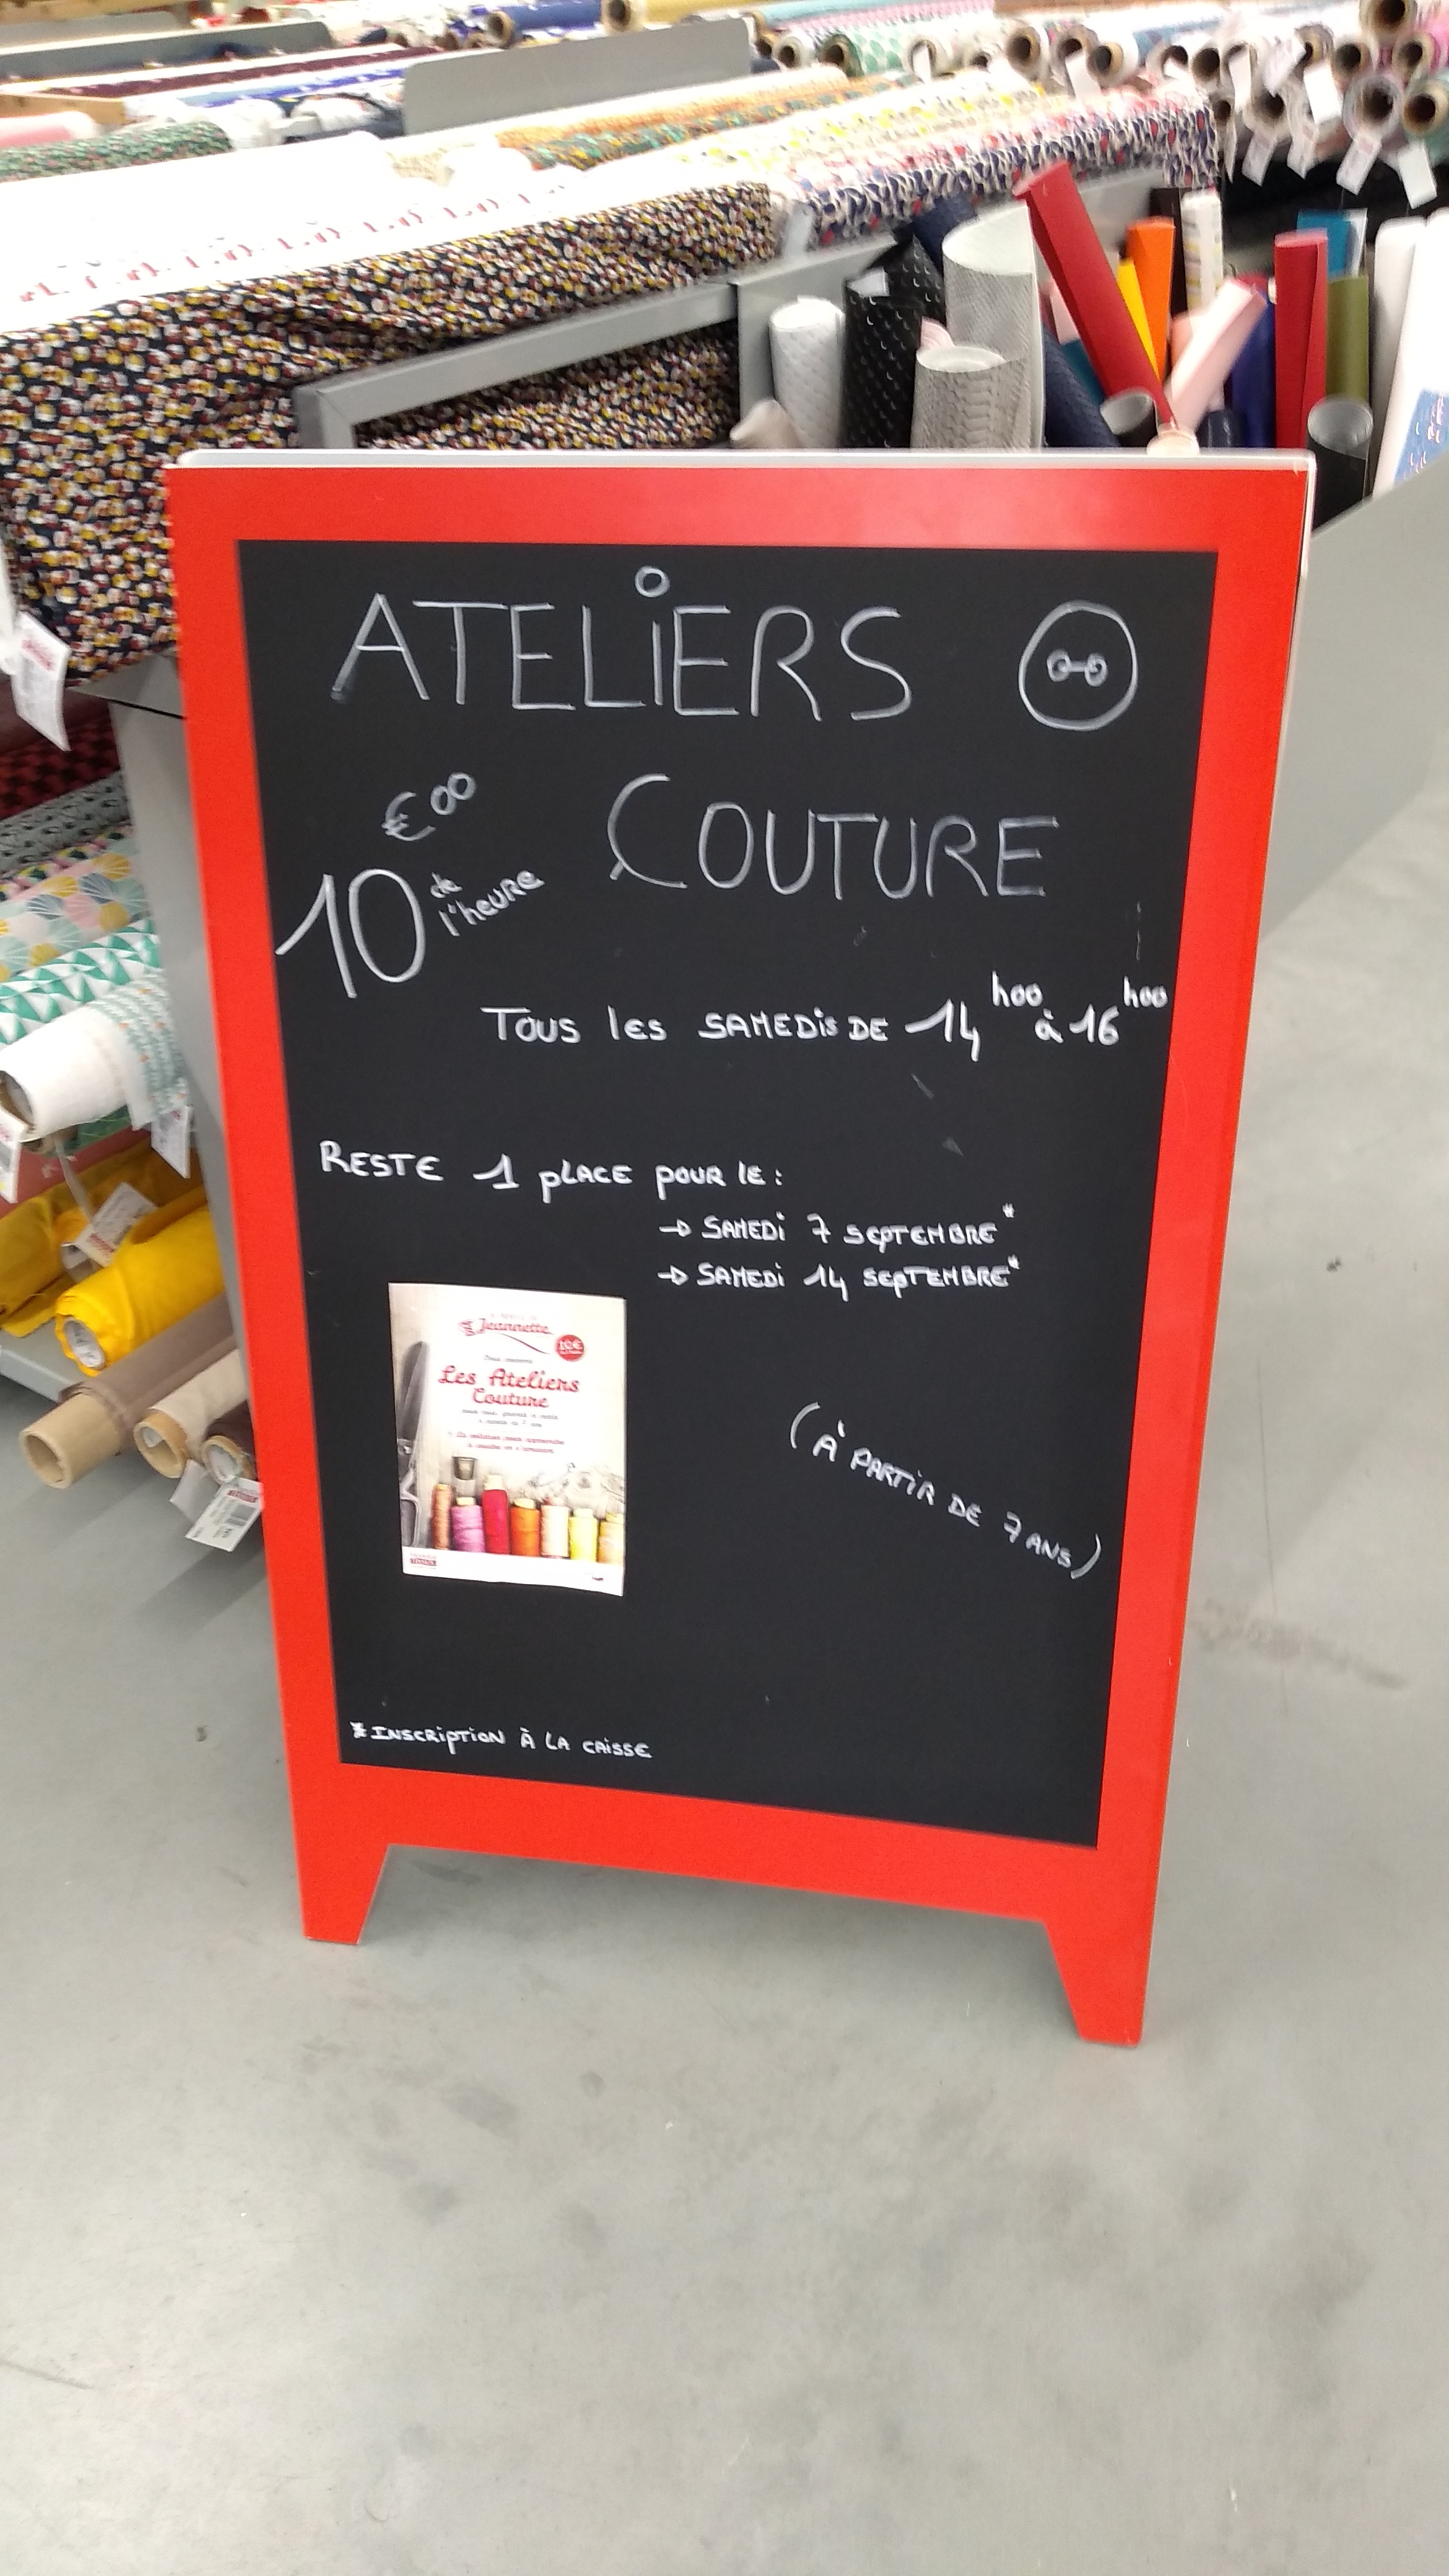 ATELIERS
€00
10 de l'heure
COUTURE
TOUS les SAMEDIS DE 14h00 à 16h00
RESTE 1 PLACE POUR LE :
→ SAMEDI 7 SEPTEMBRE*
→ SAMEDI 14 SEPTEMBRE*
Jeannette
10€
Les Ateliers
Couture
(À PARTIR DE 7 ANS)
*INSCRIPTION À LA CAISSE